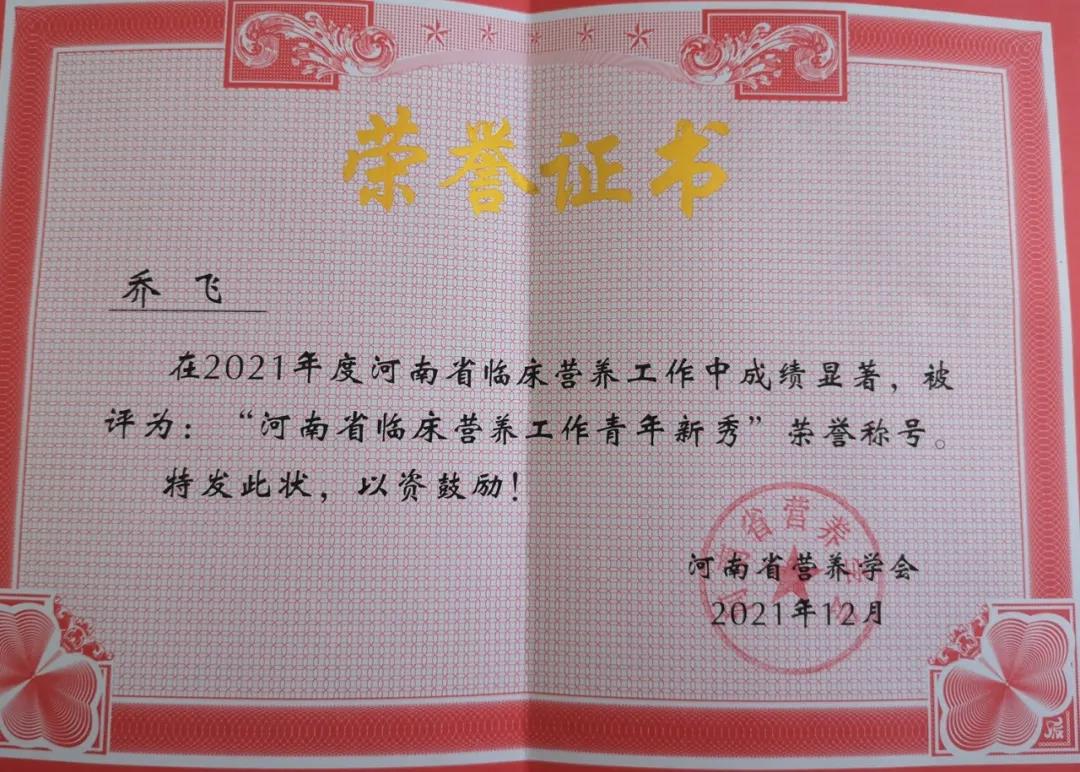 荣誉证书
乔 飞
在2021年度河南省临床营养工作中成绩显著，被
评为：“河南省临床营养工作青年新秀”荣誉称号。
特发此状，以资鼓励！
河南省营养学会
2021年12月
河南省营养学会